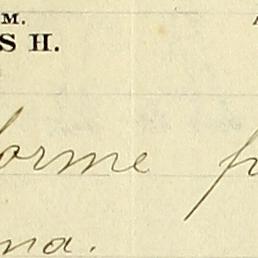 M.
S H.
orme
na.